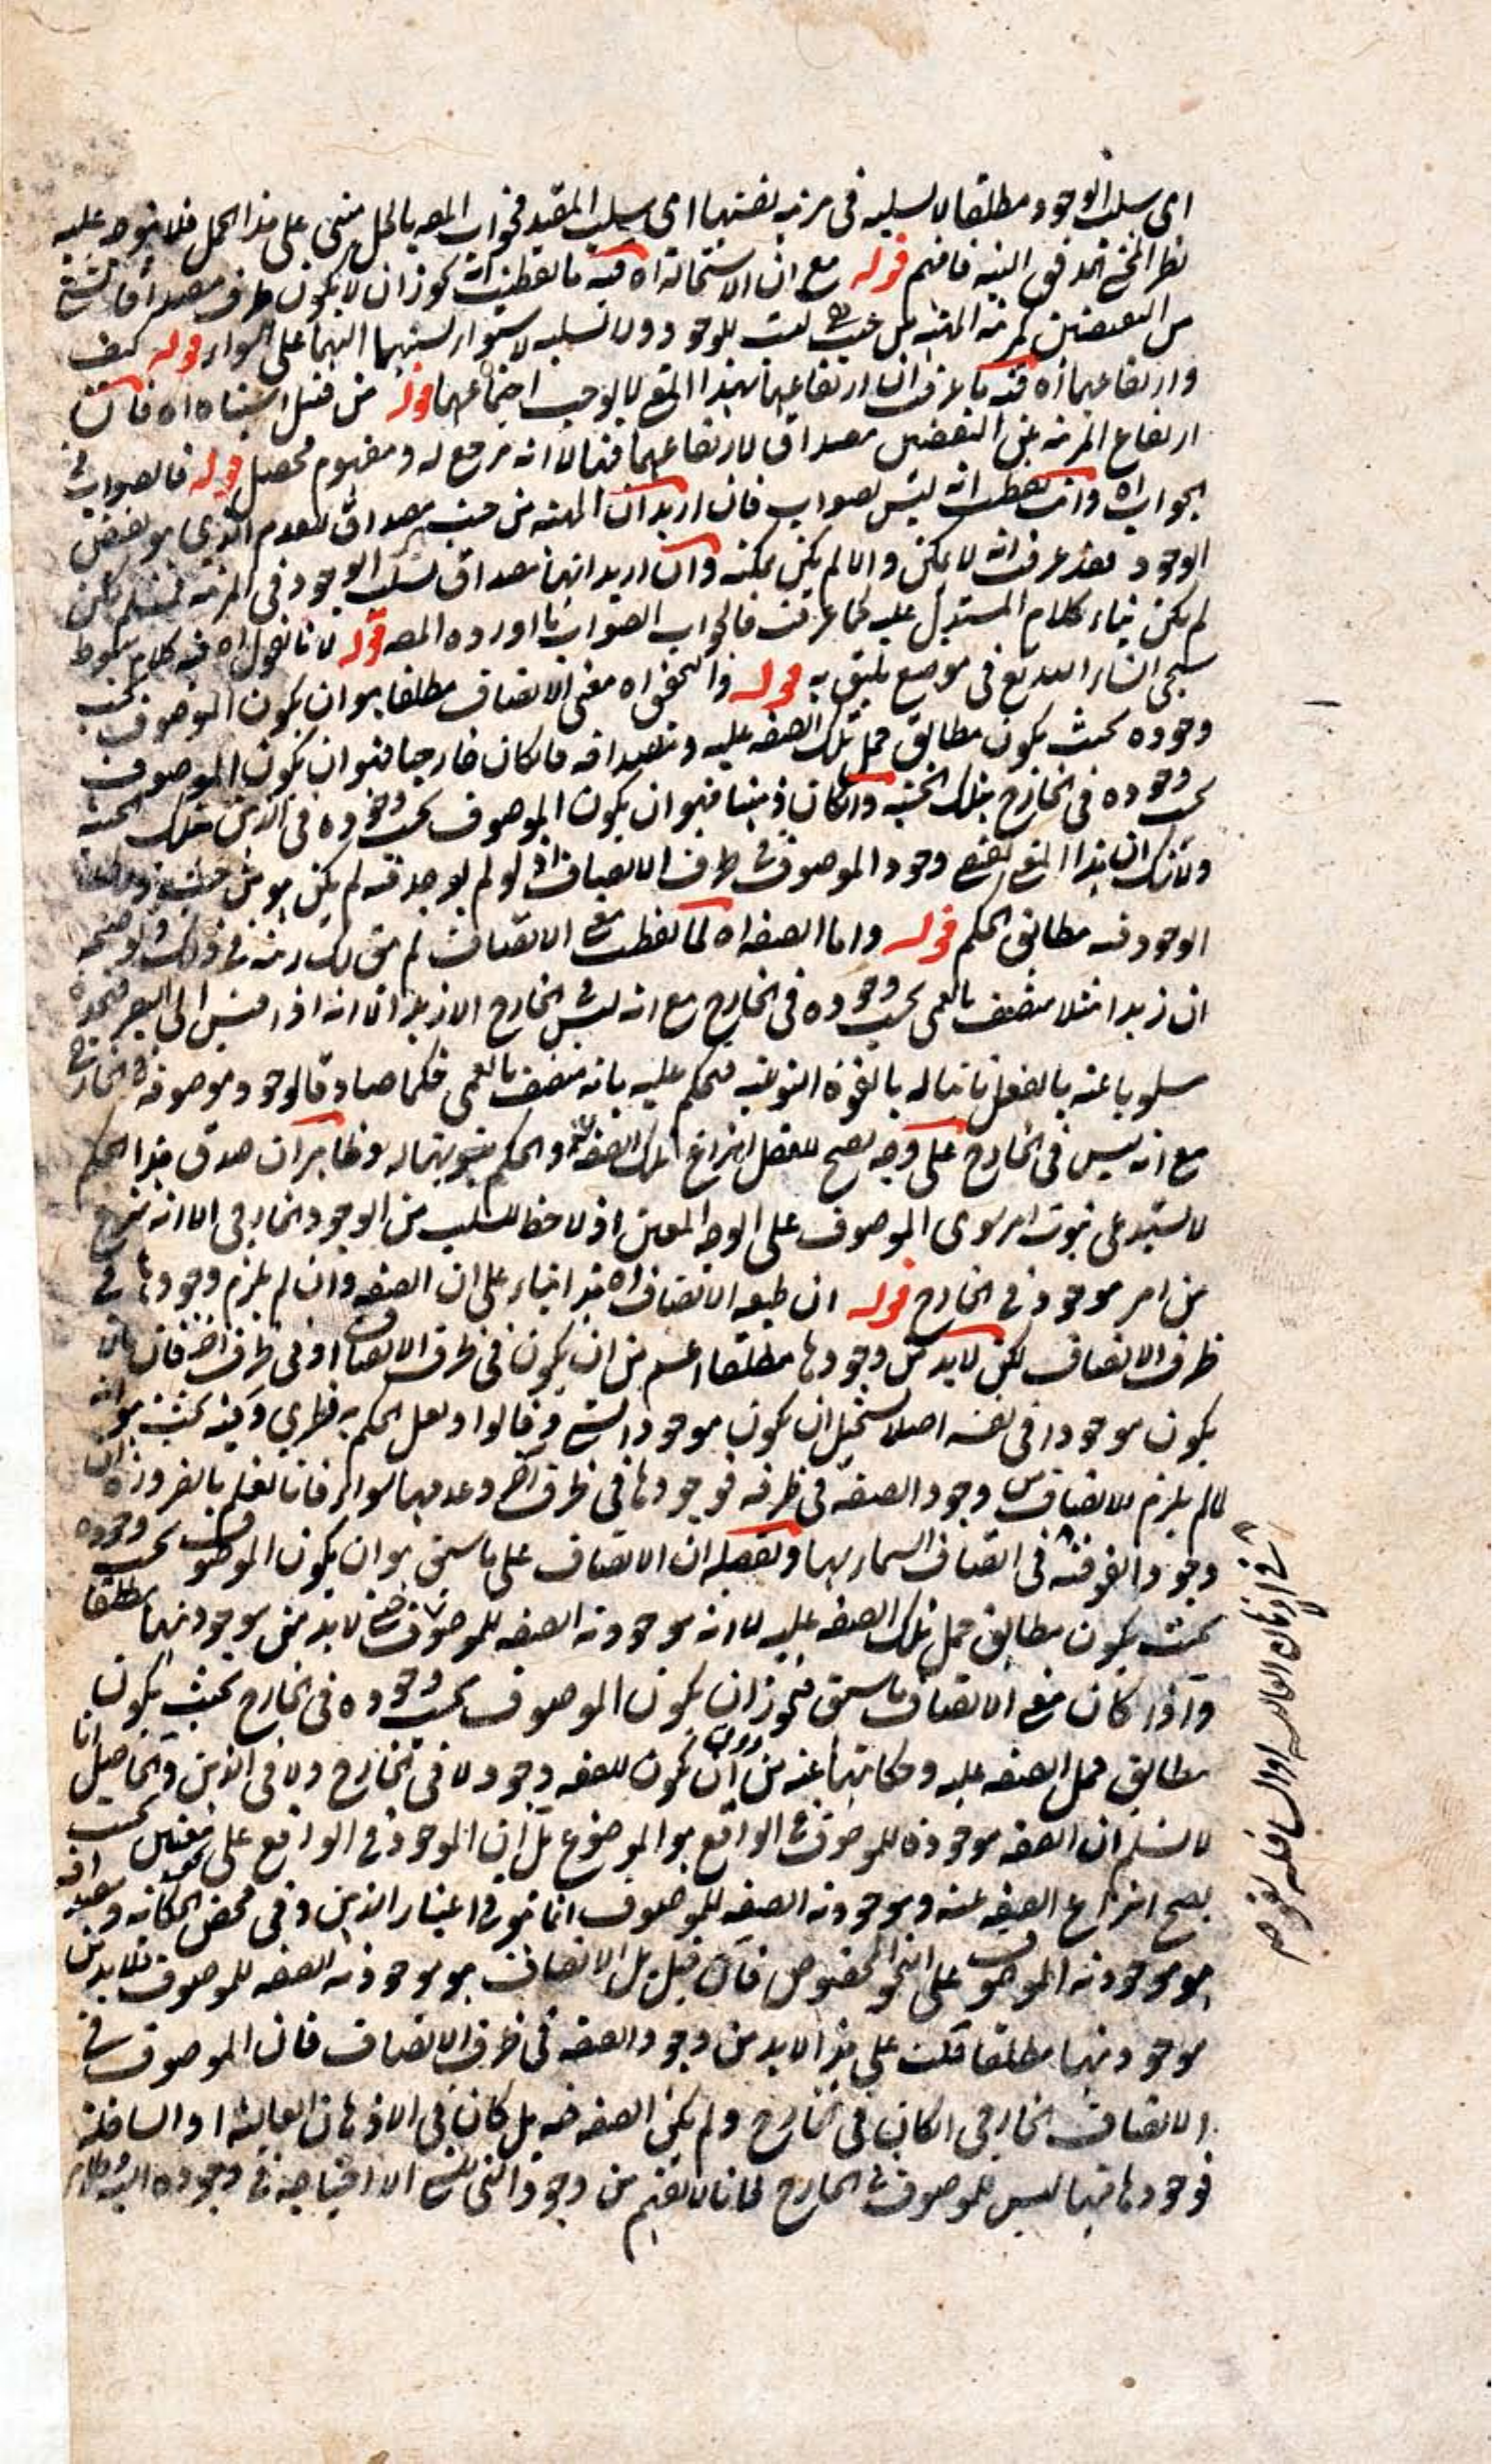 اى سلب الوجود مطلقا لا سلبه فى مرتبة نفسها اى سلب المقيد فجواب المص بالحل مبنى على هذا الحمل فلا يتوجه عليه
نظر المحشى فافهم قوله مع ان الاستحالة اه فيه ما تفطنت انه يجوز ان لا يكون ظرف مصداقا لشئ
من النقيضين كمرتبة المهية من حيث هى ليست للوجود ولا لسلبه لاستواء نسبتهما اليها على السواء قوله كيف
وارتفاعهما اه فيه ما عرفت ان ارتفاعهما بهذا المعنى لا يوجب اجتماعهما قوله من قبيل اشتباه اه فان
ارتفاع المرتبة عن النقيضين مصداق لارتفاعهما فيها لا انه مرجع له ومفهوم محصل قوله فالصواب فى
الجواب اه وانت تفطنت انه ليس بصواب فان اريد ان المهية من حيث هى مصداق للعدم الذى هو نقيض
الوجود فقد عرفت انه لا يمكن والا لم يكن ممكنة وان اريد انها مصداق لسلب الوجود فى المرتبة فمسلم لكن
لم يكن بناء كلام المستدل عليه كما عرفت فالجواب الصواب ما اورده المص قوله لانا نقول اه فيه كلام مبسوط
سيجئ انشاء الله تع فى موضع يليق به قوله والتحقيق اه معنى الاتصاف مطلقا هو ان يكون الموصوف بحسب
وجوده بحيث يكون مطابق حمل تلك الصفة عليه ومصداقه فان كان خارجيا فهو ان يكون الموصوف
بحسب وجوده فى الخارج بتلك الحيثية وان كان ذهنيا فهو ان يكون الموصوف بحسب وجوده فى الذهن بتلك الحيثية
ولا شك ان هذا المعنى يقتضى وجود الموصوف فى ظرف الاتصاف اذ لو لم يوجد فيه لم يكن هو من حيث
الوجود فيه مطابق الحكم قوله واما الصفة اه لما تفطنت معنى الاتصاف لم يبق لك ريبة فى ذلك وتوضيحه
ان زيدا مثلا متصف بالعمى بحسب وجوده فى الخارج مع انه ليس فى الخارج الا زيد الا انه اذا قيس الى البصر فيجده
مسلوبا عنه بالفعل ثابتا له بالقوة النوعية فيحكم عليه بانه متصف بالعمى حكما صادقا لوجود موصوفه فى الخارج
مع انه ليس فى الخارج على وجه يصح للعقل انتزاع تلك الصفة والحكم بثبوتها له وظاهر ان صدق هذا الحكم
لا يستدعى ثبوت امر سوى الموصوف على الوجه المعين اذ لا حظ للسلب من الوجود الخارجى الا انه منتزع
من امر موجود فى الخارج قوله ان طبيعة الاتصاف اه هذا بناء على ان الصفة وان لم يلزم وجودها فى
ظرف الاتصاف لكن لا بد من وجودها مطلقا اعم من ان يكون فى ظرف الاتصاف او فى ظرف اخر فان ما لا
يكون موجودا فى نفسه اصلا يستحيل ان يكون موجودا لشئ وقالوا ولعل الحكم به فطرى وفيه بحث هو انه
لما لم يلزم الاتصاف من وجود الصفة فى ظرفه فوجودها فى ظرف آخر وعدمها سواء فانا نعلم بالضرورة ان
وجود الفوقية فى اتصاف السماء بها وتفصيله ان الاتصاف على ما سبق هو ان يكون الموصوف بحسب وجوده
بحيث يكون مطابق حمل تلك الصفة عليه لا انه موجودية الصفة للموصوف حتى لا بد من موجوديتها مطلقا
واذا كان معنى الاتصاف ما سبق فيجوز ان يكون الموصوف بحسب وجوده فى الخارج بحيث يكون
مطابق حمل الصفة عليه وحكايتها عنه من دون ان يكون للصفة وجود لا فى الخارج ولا فى الذهن والحاصل انا
لا نسلم ان الصفة موجودة للموصوف فى الواقع هو الموضوع بل ان الموجود فى الواقع على معنيين بحسب
يصح انتزاع الصفة عنه وموجودية الصفة للموصوف انما هو فى اعتبار الذهن وفى محض الحكاية ومصداقه
هو موجودية الموصوف على النحو المخصوص فان قيل بل الاتصاف هو موجودية الصفة للموصوف فلا بد من
موجوديتها مطلقا قلت على هذا لا بد من وجود الصفة فى ظرف الاتصاف فان الموصوف فى
الاتصاف الخارجى ان كان فى الخارج ولم يكن الصفة فيه بل كان فى الاذهان العالية او السافلة
فوجودها فيها ليس للموصوف فى الخارج فانا لا نفهم من وجود الشئ للشئ الا احتياجه فى وجوده اليه